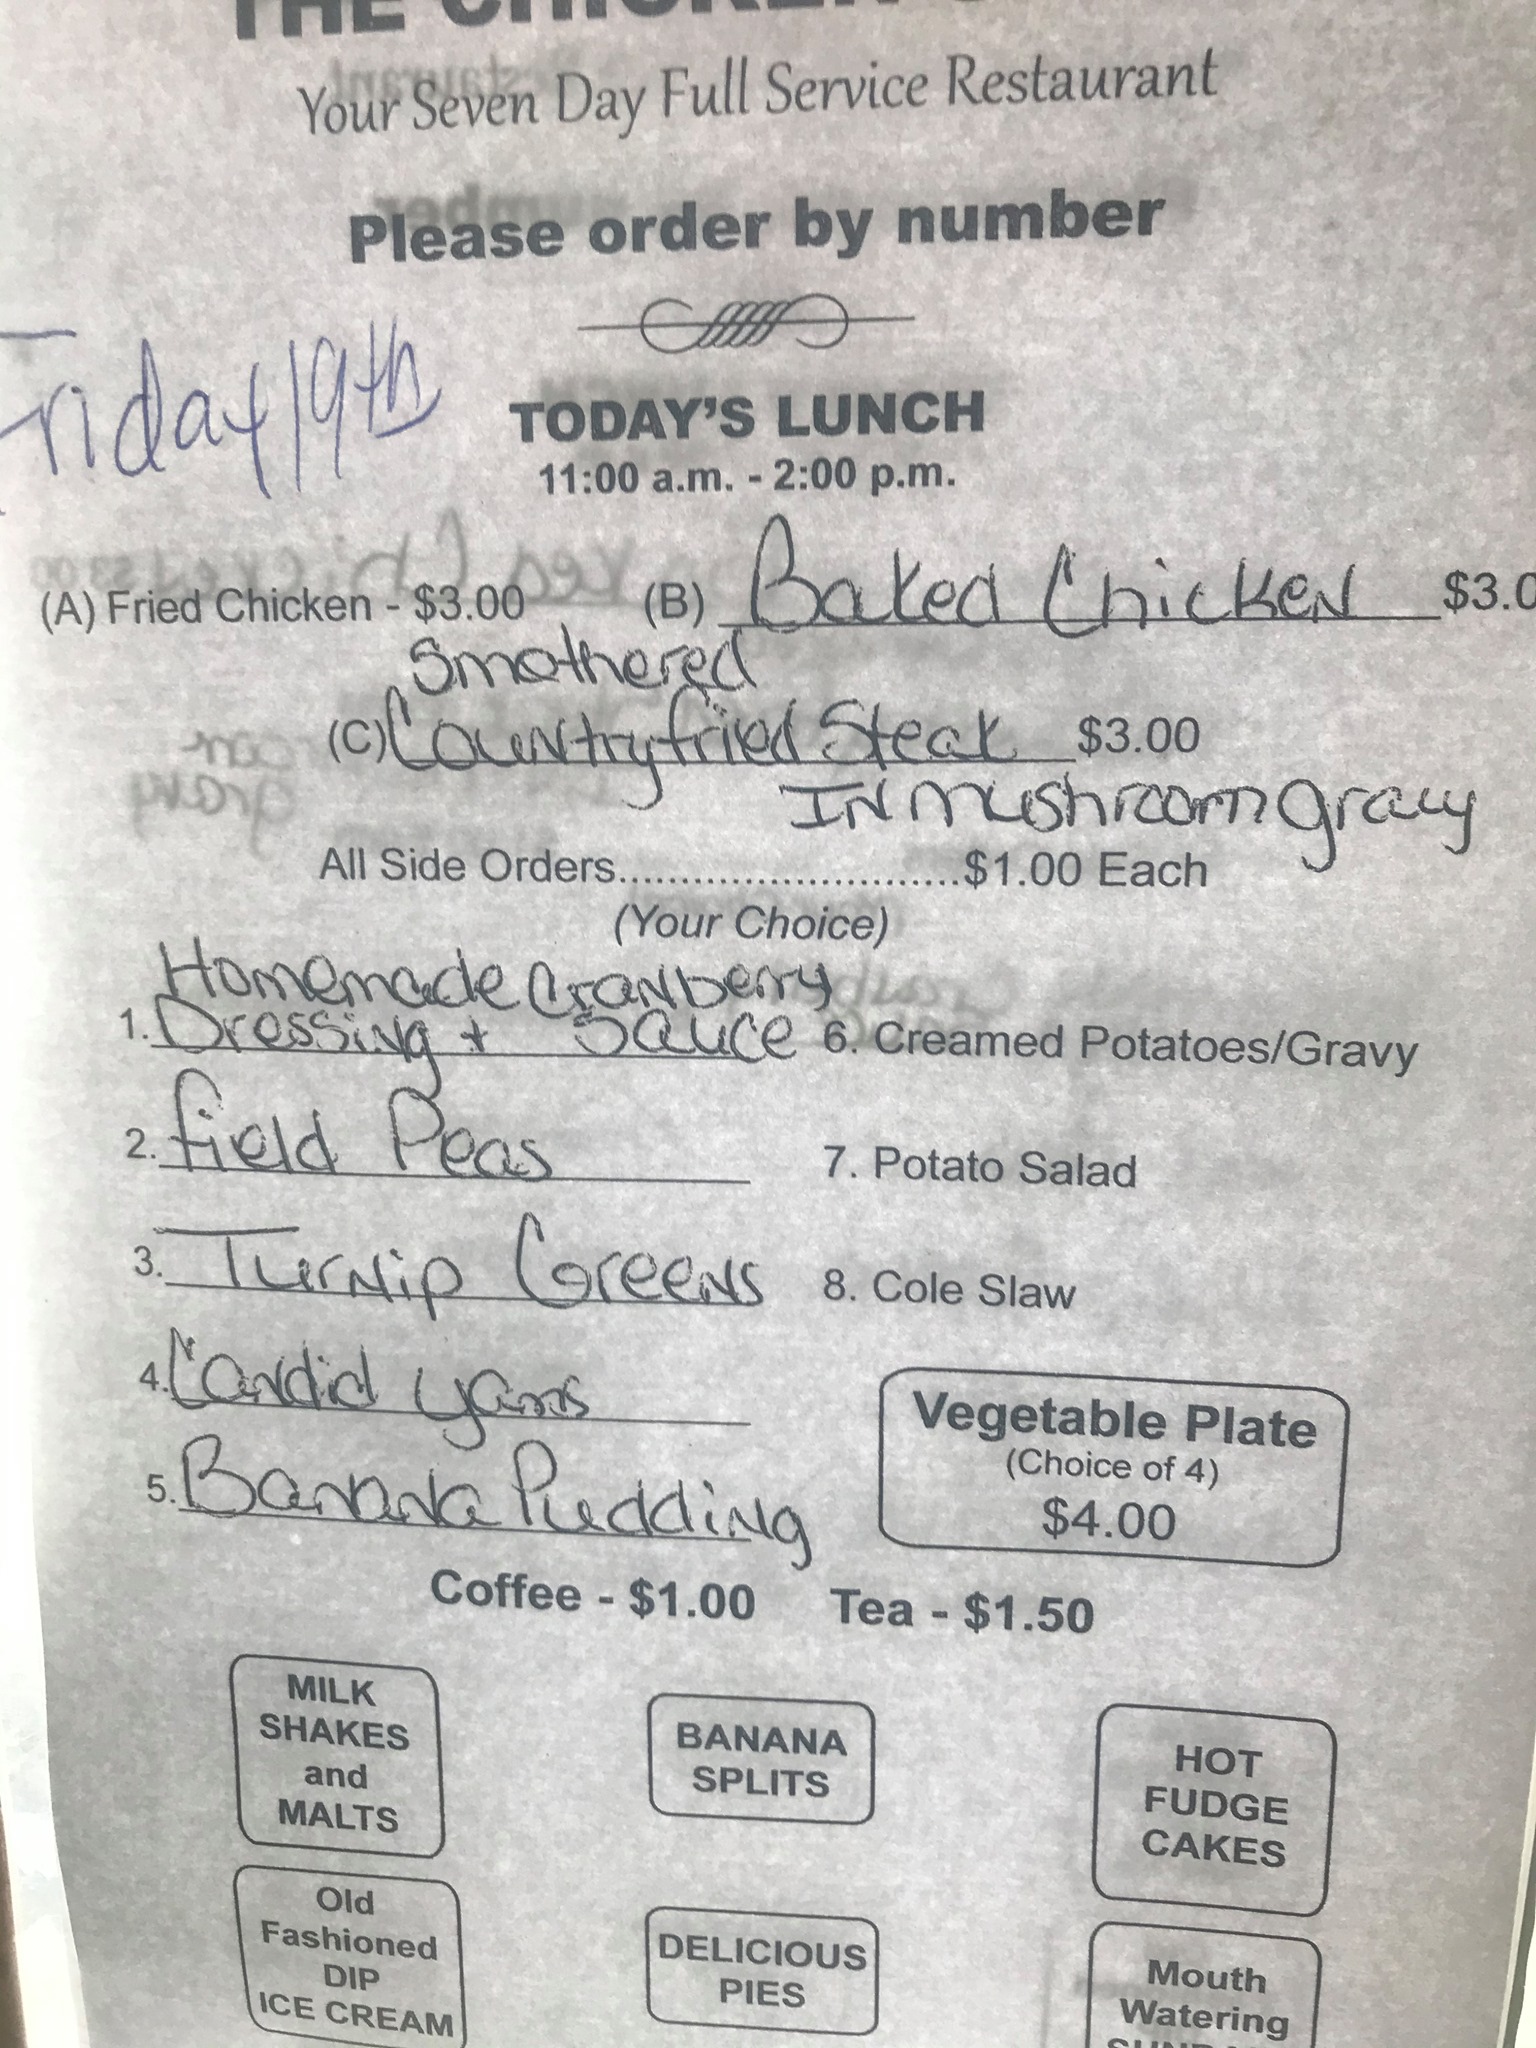 THE CHICKEN
Your Seven Day Full Service Restaurant
Please order by number
Friday 19th
TODAY'S LUNCH
11:00 a.m. - 2:00 p.m.
(A) Fried Chicken - $3.00 (B) Baked Chicken $3.0
Smothered
(C) Countryfried Steak $3.00
IN mushroom gravy
All Side Orders...........................$1.00 Each
(Your Choice)
Homemade Cranberry
1. Dressing + Sauce 6. Creamed Potatoes/Gravy
2. field Peas 7. Potato Salad
3. Turnip Greens 8. Cole Slaw
4. Candid yams
5. Banana Pudding
Vegetable Plate
(Choice of 4)
$4.00
Coffee - $1.00 Tea - $1.50
MILK
SHAKES
and
MALTS
BANANA
SPLITS
HOT
FUDGE
CAKES
Old
Fashioned
DIP
ICE CREAM
DELICIOUS
PIES
Mouth
Watering